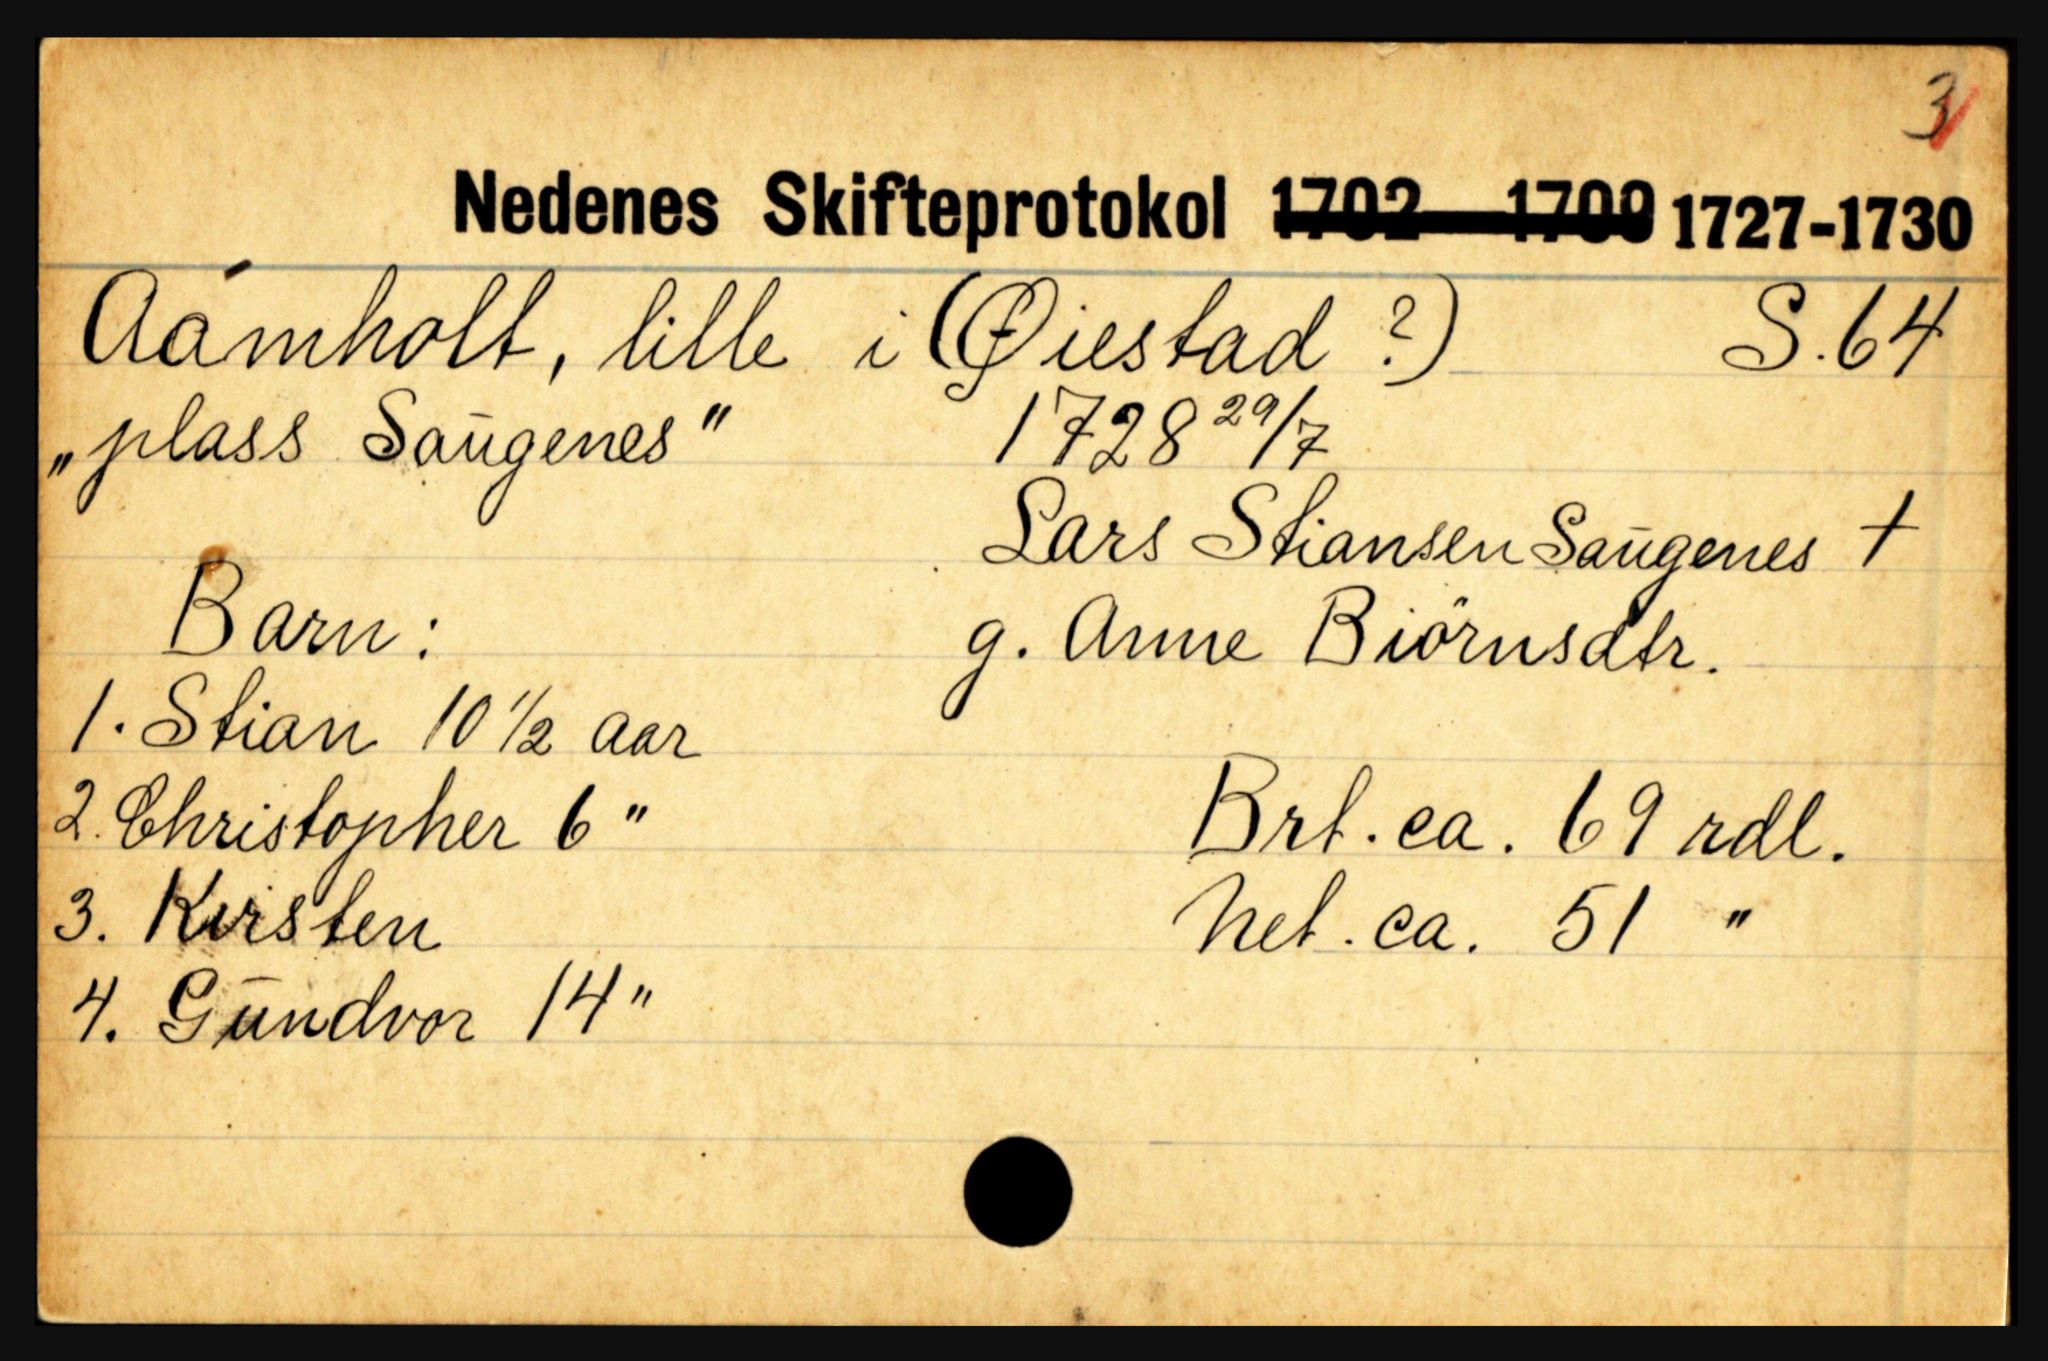 3
Nedenes Skifteprotokol 1702 — 1709 1727-1730
Aamholt, lille i (Øiestad ?) S. 64
„plass Saugenes" 1728 29/7
Lars Stiansen Saugenes †
Barn: g. Anne Biörnsdtr.
1. Stian 10 1/2 aar
2. Christopher 6 " Brt. ca. 69 rdl.
3. Kirsten Net. ca. 51 "
4. Gundvor 14 "